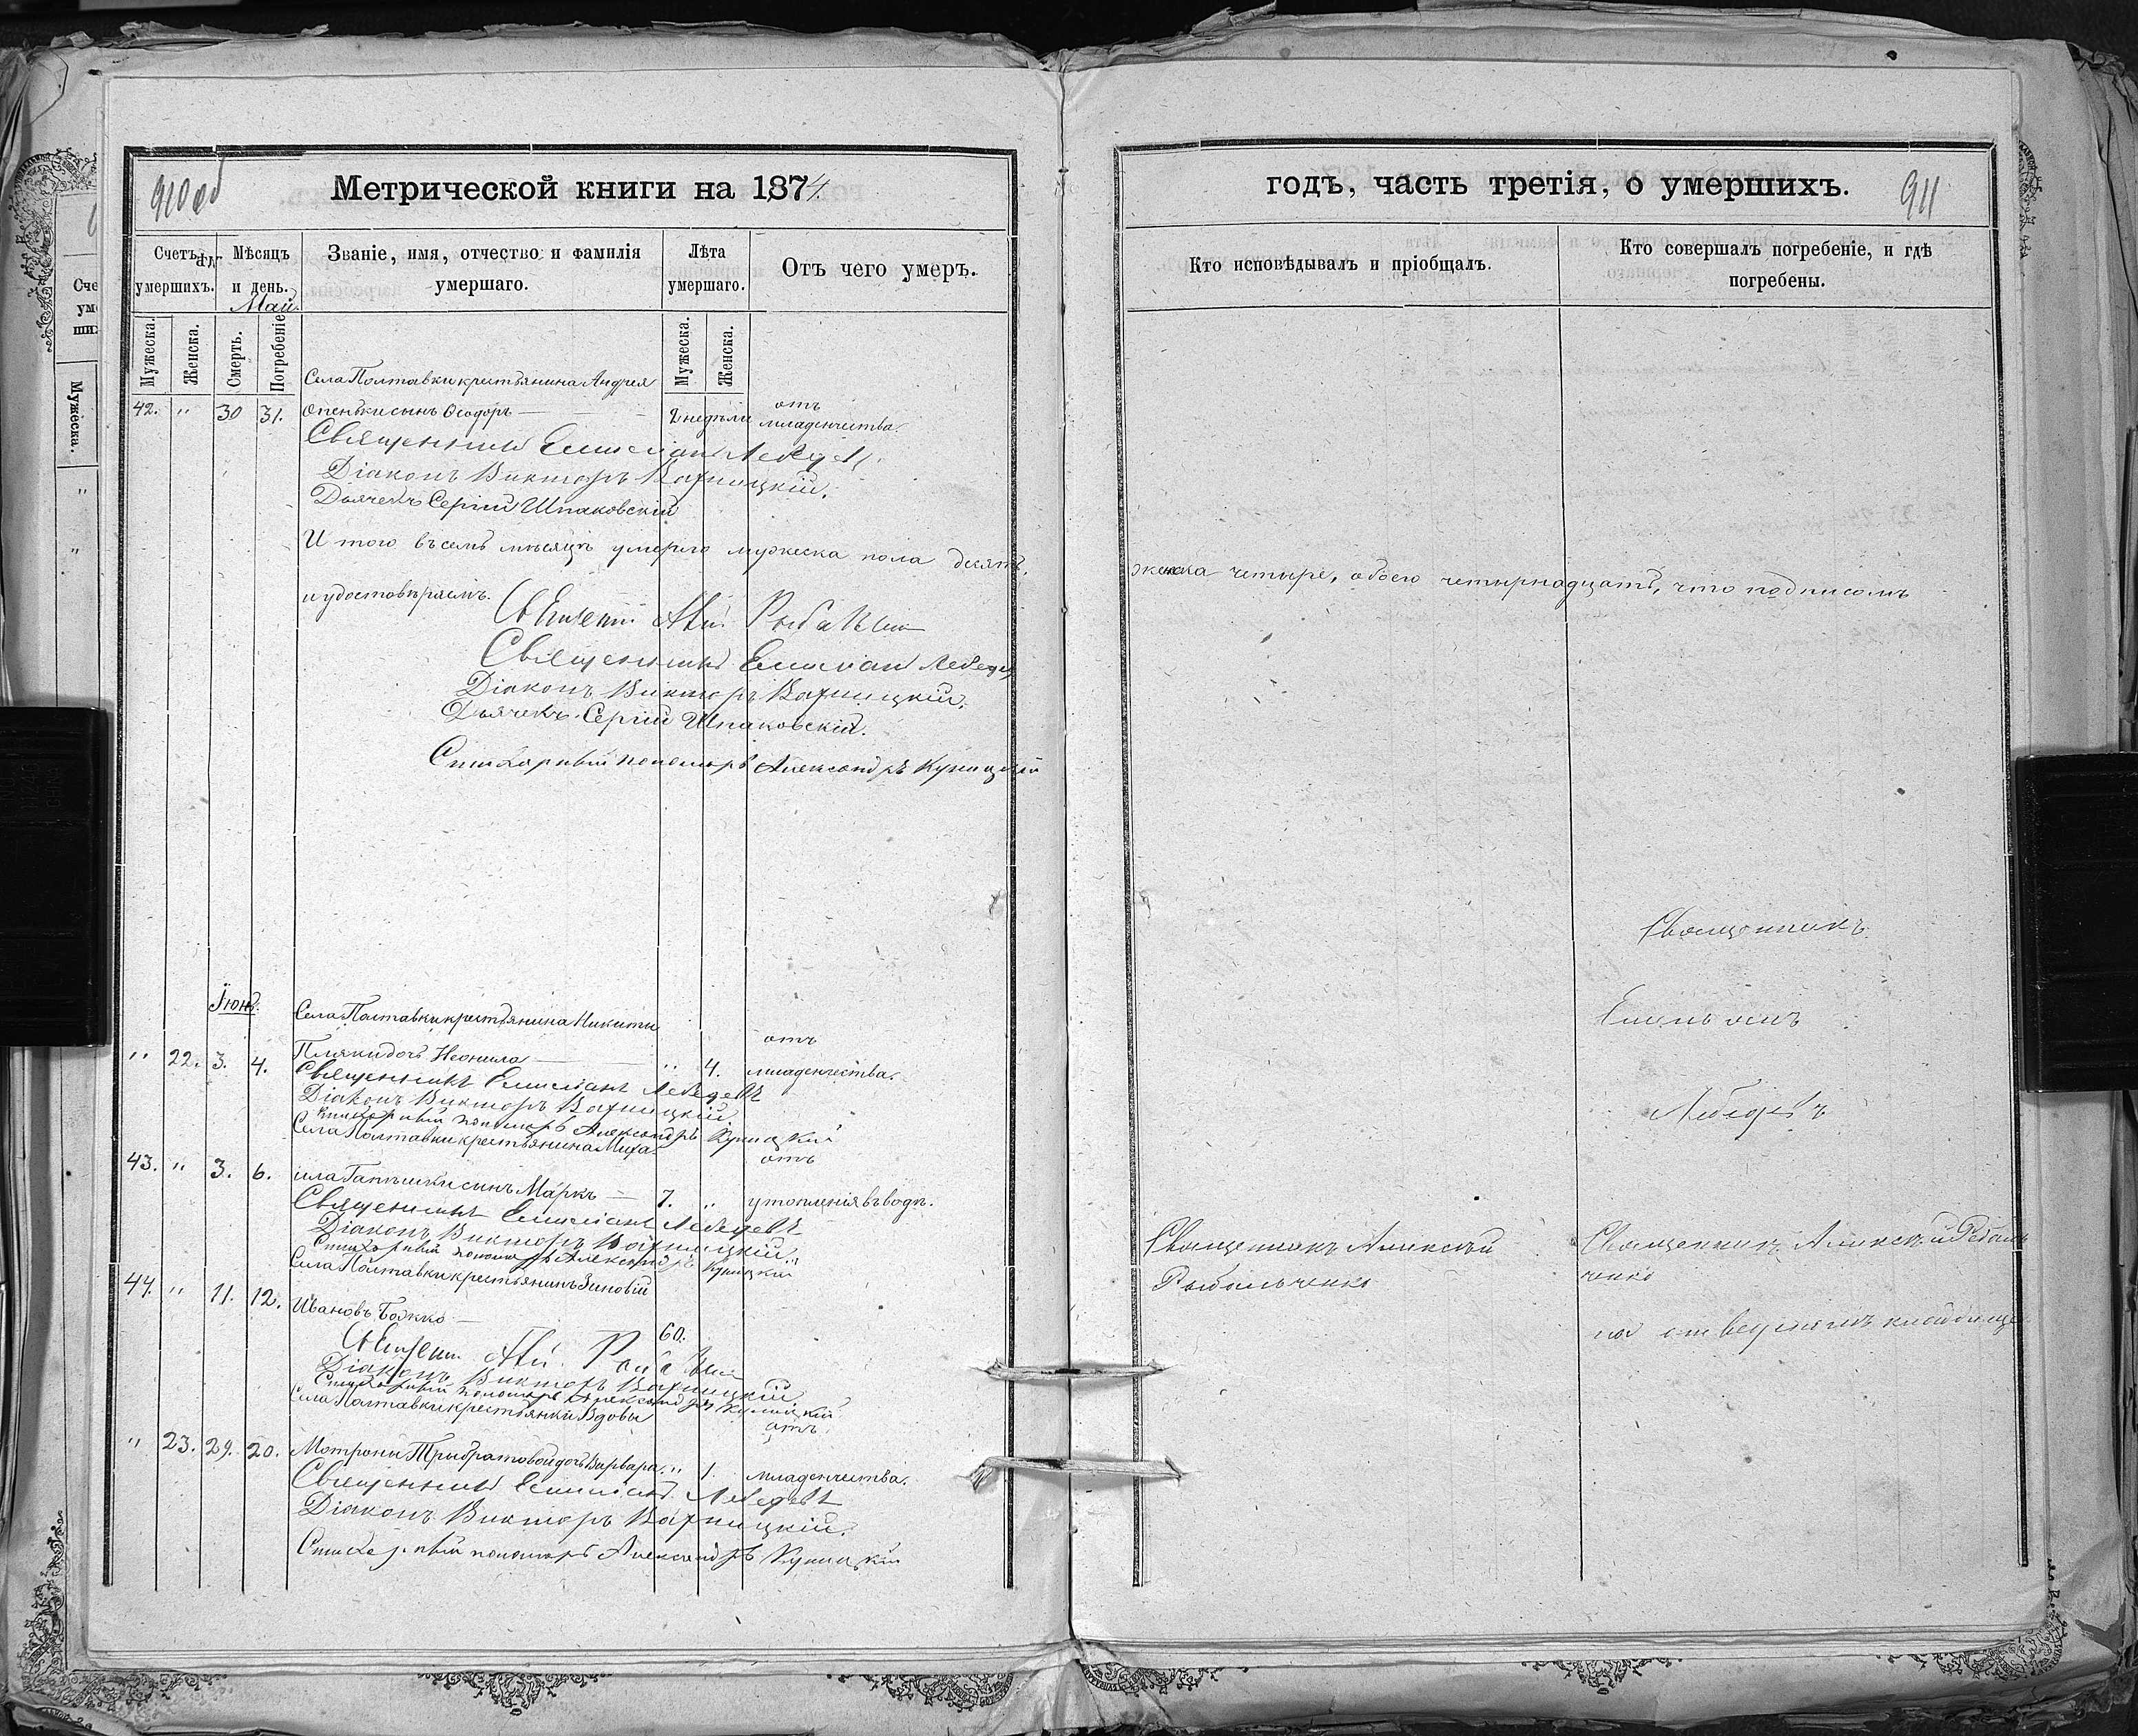 910 об
Метрической книги на 1874.
Счетъ
умершихъ.
Мѣсяцъ
и день.
Май.
Званіе, имя, отчество и фамилія
умершаго.
Лѣта
умершаго.
Отъ чего умеръ.
Мужеска.
Женска.
Смерть.
Погребеніе
Мужеска.
Женска.
Села Полтавки крестьянина Андрея
42. " 30 31. Опеньки сынъ Ѳеодоръ — 2 недѣли отъ
младенчества.
Священникъ Емиліан Лебедев
Діаконъ Викторъ Вахницкій.
Дьячекъ Сергій Шпаковскій
И того въ семъ мѣсяцѣ умерло мужеска пола десять,
и удостовѣряемъ.
Священникъ Рыбальченко
Священникъ Емиліан Лебедев
Діаконъ Викторъ Вахницкій.
Дьячекъ Сергій Шпаковскій.
Стихарный пономарь Александръ Куницкій
Іюнь.
Села Полтавки крестьянина Никиты
отъ
" 22. 3. 4. Пляки дочь Неонила — " 4. младенчества.
Священникъ Емиліанъ Лебедевъ
Діаконъ Викторъ Вахницкій.
Стихарный пономарь Александръ Куницкій
Села Полтавки крестьянина Миха-
отъ
43. " 3. 6. ила сынъ Маркъ — 7. " утопленія въ водѣ.
Священникъ Емиліанъ Лебедевъ
Діаконъ Викторъ Вахницкій.
Стихарный пономарь Александръ Куницкій
Села Полтавки крестьянинъ Зиновій
44. " 11. 12. Ивановъ Божко — 60.
Рыбальченко
Діаконъ Викторъ Вахницкій
Стихарный пономарь Александръ Куницкій
Села Полтавки крестьянки Вдовы
отъ
" 23. 29. 20. Мотроны Трибратовой дочь Варвара. " 1. младенчества.
Священникъ Емиліанъ Лебедевъ
Діаконъ Викторъ Вахницкій.
Стихарный пономарь Александръ Куницкій
годъ, часть третія, о умершихъ.
911
Кто исповѣдывалъ и пріобщалъ.
Кто совершалъ погребеніе, и гдѣ
погребены.
женска четыре, обоего четырнадцать, что подписомъ
Священникъ
Емельянъ
Лебедевъ
Священникъ Алексѣй
Рыбальченко
Священникъ Алексѣй Рыбаль
ченко
на отведеномъ кладбище